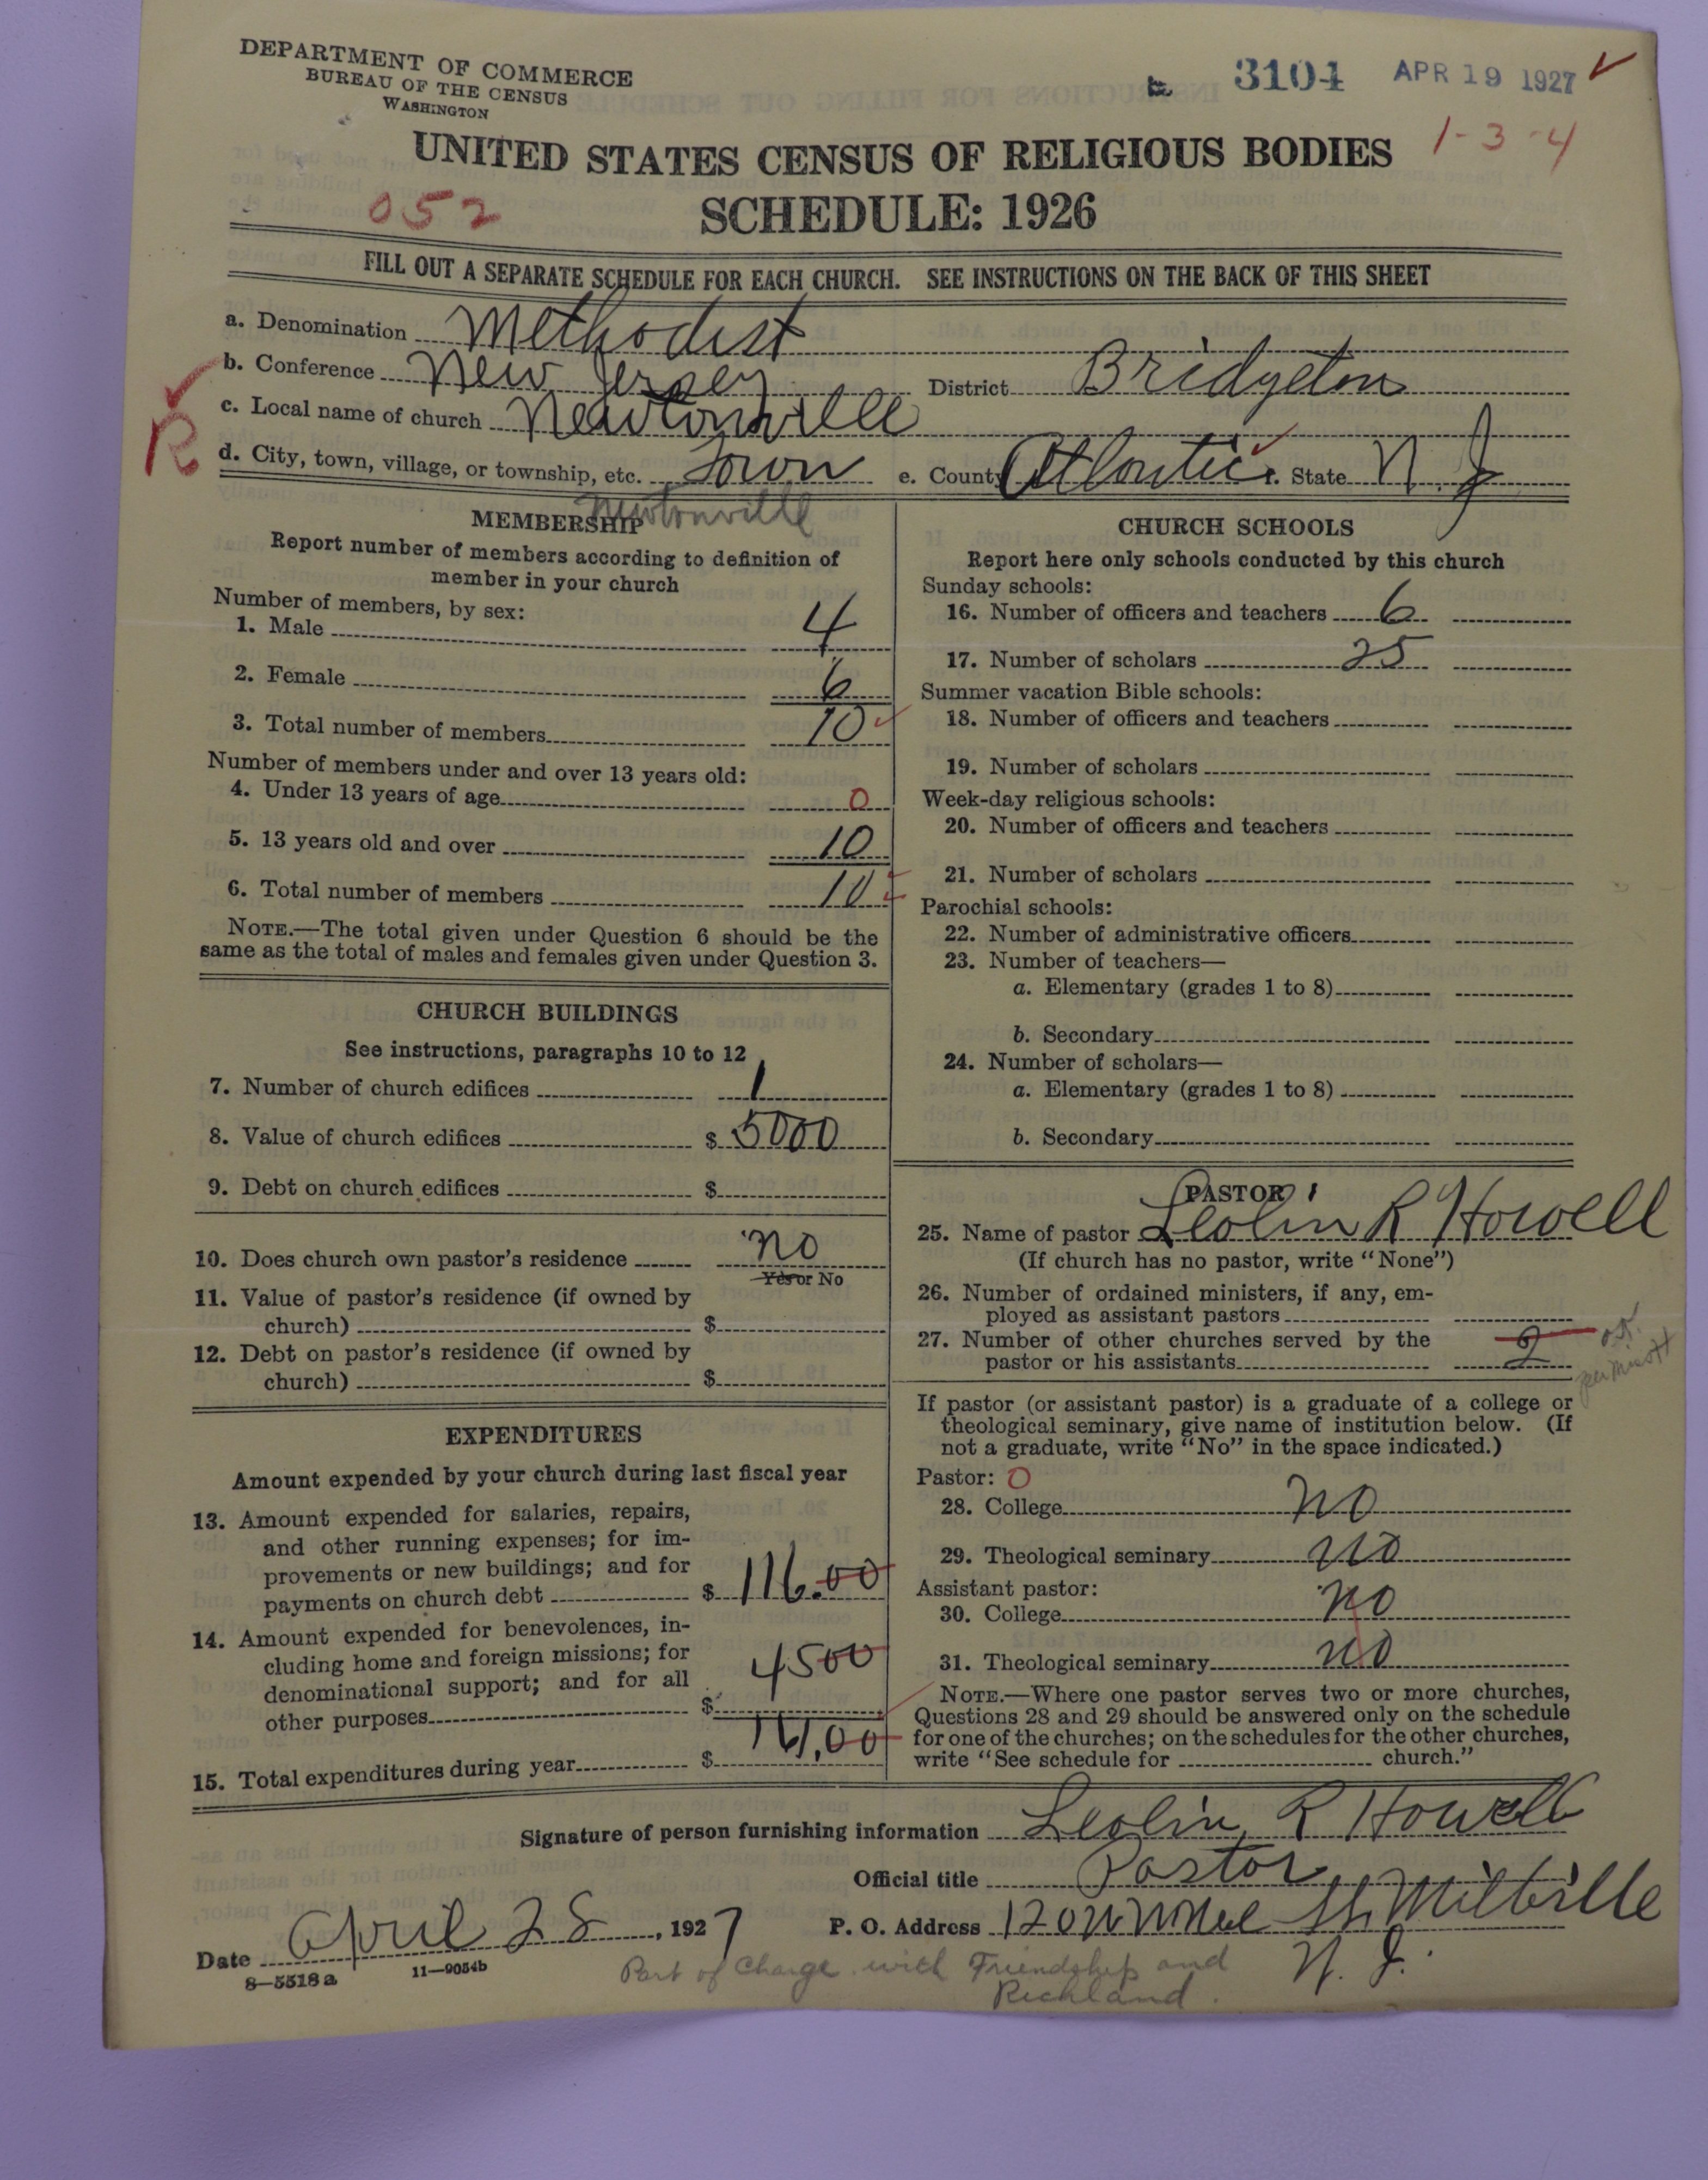 DEPARTMENT OF COMMERCE
BUREAU OF THE CENSUS
WASHINGTON
3104 APR 19 1927
1-3-4
UNITED STATES CENSUS OF RELIGIOUS BODIES
052
SCHEDULE: 1926
FILL OUT A SEPARATE SCHEDULE FOR EACH CHURCH. SEE INSTRUCTIONS ON THE BACK OF THIS SHEET
a. Denomination Methodist
b. Conference New Jersey District Bridgeton
c. Local name of church Newtonville
R
d. City, town, village, or township, etc. Town e. County Atlantic f. State N.J
Newtonville
MEMBERSHIP
Report number of members according to definition of
member in your church
Number of members, by sex:
1. Male 4
2. Female 6
3. Total number of members 10
Number of members under and over 13 years old:
4. Under 13 years of age 0
5. 13 years old and over 10
6. Total number of members 10
NOTE.—The total given under Question 6 should be the
same as the total of males and females given under Question 3.
CHURCH BUILDINGS
See instructions, paragraphs 10 to 12
7. Number of church edifices 1
8. Value of church edifices $ 5000
9. Debt on church edifices $
10. Does church own pastor's residence no
Yes or No
11. Value of pastor's residence (if owned by
church) $
12. Debt on pastor's residence (if owned by
church) $
EXPENDITURES
Amount expended by your church during last fiscal year
13. Amount expended for salaries, repairs,
and other running expenses; for im-
provements or new buildings; and for
payments on church debt $ 116.00
14. Amount expended for benevolences, in-
cluding home and foreign missions; for
denominational support; and for all
other purposes $ 4500
15. Total expenditures during year $ 161.00
CHURCH SCHOOLS
Report here only schools conducted by this church
Sunday schools:
16. Number of officers and teachers 6
17. Number of scholars 25
Summer vacation Bible schools:
18. Number of officers and teachers
19. Number of scholars
Week-day religious schools:
20. Number of officers and teachers
21. Number of scholars
Parochial schools:
22. Number of administrative officers
23. Number of teachers—
a. Elementary (grades 1 to 8)
b. Secondary
24. Number of scholars—
a. Elementary (grades 1 to 8)
b. Secondary
PASTOR
25. Name of pastor Leolin R Howell
(If church has no pastor, write "None")
26. Number of ordained ministers, if any, em-
ployed as assistant pastors
27. Number of other churches served by the
pastor or his assistants 2
O.K.
If pastor (or assistant pastor) is a graduate of a college or
theological seminary, give name of institution below. (If
not a graduate, write "No" in the space indicated.)
Pastor: 0
28. College no
29. Theological seminary no
Assistant pastor:
30. College no
31. Theological seminary no
NOTE.—Where one pastor serves two or more churches,
Questions 28 and 29 should be answered only on the schedule
for one of the churches; on the schedules for the other churches,
write "See schedule for church."
Signature of person furnishing information Leolin R Howell
Official title Pastor
Date April 28, 1927 P. O. Address St Millville
N. J.
8—5518a 11—9054b
Part of Charge with Friendship and
Richland.